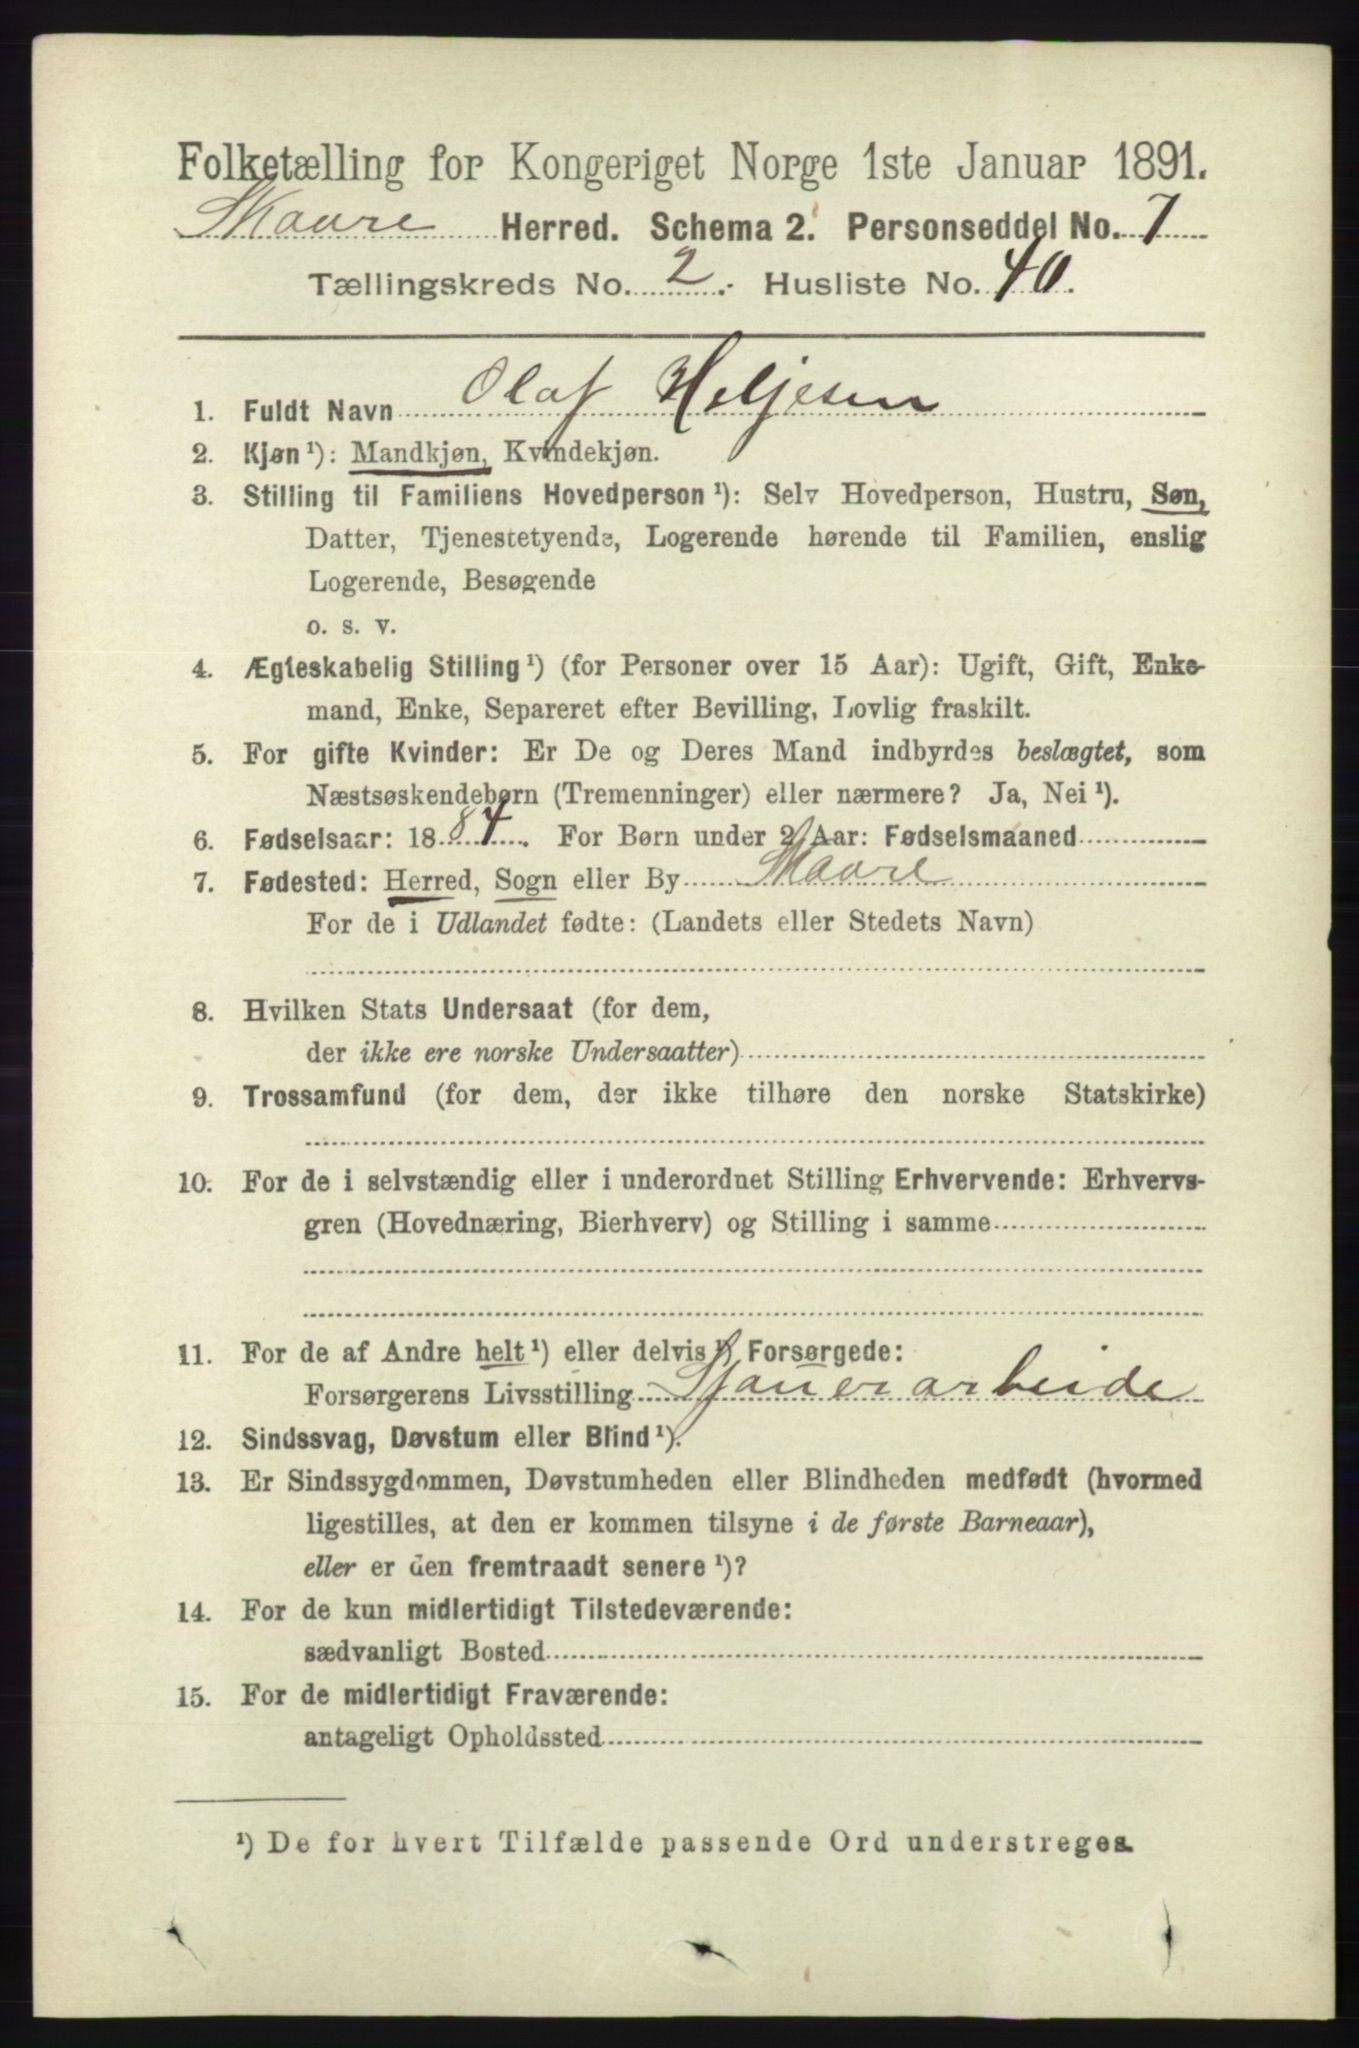 Folketælling for Kongeriget Norge 1ste Januar 1891.
Skaare Herred. Schema 2. Personseddel No. 7
Tællingskreds No. 2. Husliste No. 40.
1. Fuldt Navn Olaf Heljesen
2. Kjøn¹): Mandkjøn, Kvindekjøn.
3. Stilling til Familiens Hovedperson¹): Selv Hovedperson, Hustru, Søn,
Datter, Tjenestetyende, Logerende hørende til Familien, enslig
Logerende, Besøgende
o. s. v.
4. Ægteskabelig Stilling¹) (for Personer over 15 Aar): Ugift, Gift, Enke-
mand, Enke, Separeret efter Bevilling, Lovlig fraskilt.
5. For gifte Kvinder: Er De og Deres Mand indbyrdes beslægtet, som
Næstsøskendebørn (Tremenninger) eller nærmere? Ja, Nei¹).
6. Fødselsaar: 1884. For Børn under 2 Aar: Fødselsmaaned
7. Fødested: Herred, Sogn eller By Skaare
For de i Udlandet fødte: (Landets eller Stedets Navn)
8. Hvilken Stats Undersaat (for dem,
der ikke ere norske Undersaatter)
9. Trossamfund (for dem, der ikke tilhøre den norske Statskirke)
10. For de i selvstændig eller i underordnet Stilling Erhvervende: Erhvervs-
gren (Hovednæring, Bierhverv) og Stilling i samme
11. For de af Andre helt¹) eller delvis¹) Forsørgede:
Forsørgerens Livsstilling Sjauerarbeide
12. Sindssvag, Døvstum eller Blind¹).
13. Er Sindssygdommen, Døvstumheden eller Blindheden medfødt (hvormed
ligestilles, at den er kommen tilsyne i de første Barneaar),
eller er den fremtraadt senere¹)?
14. For de kun midlertidigt Tilstedeværende:
sædvanligt Bosted
15. For de midlertidigt Fraværende:
antageligt Opholdssted
¹) De for hvert Tilfælde passende Ord understreges.